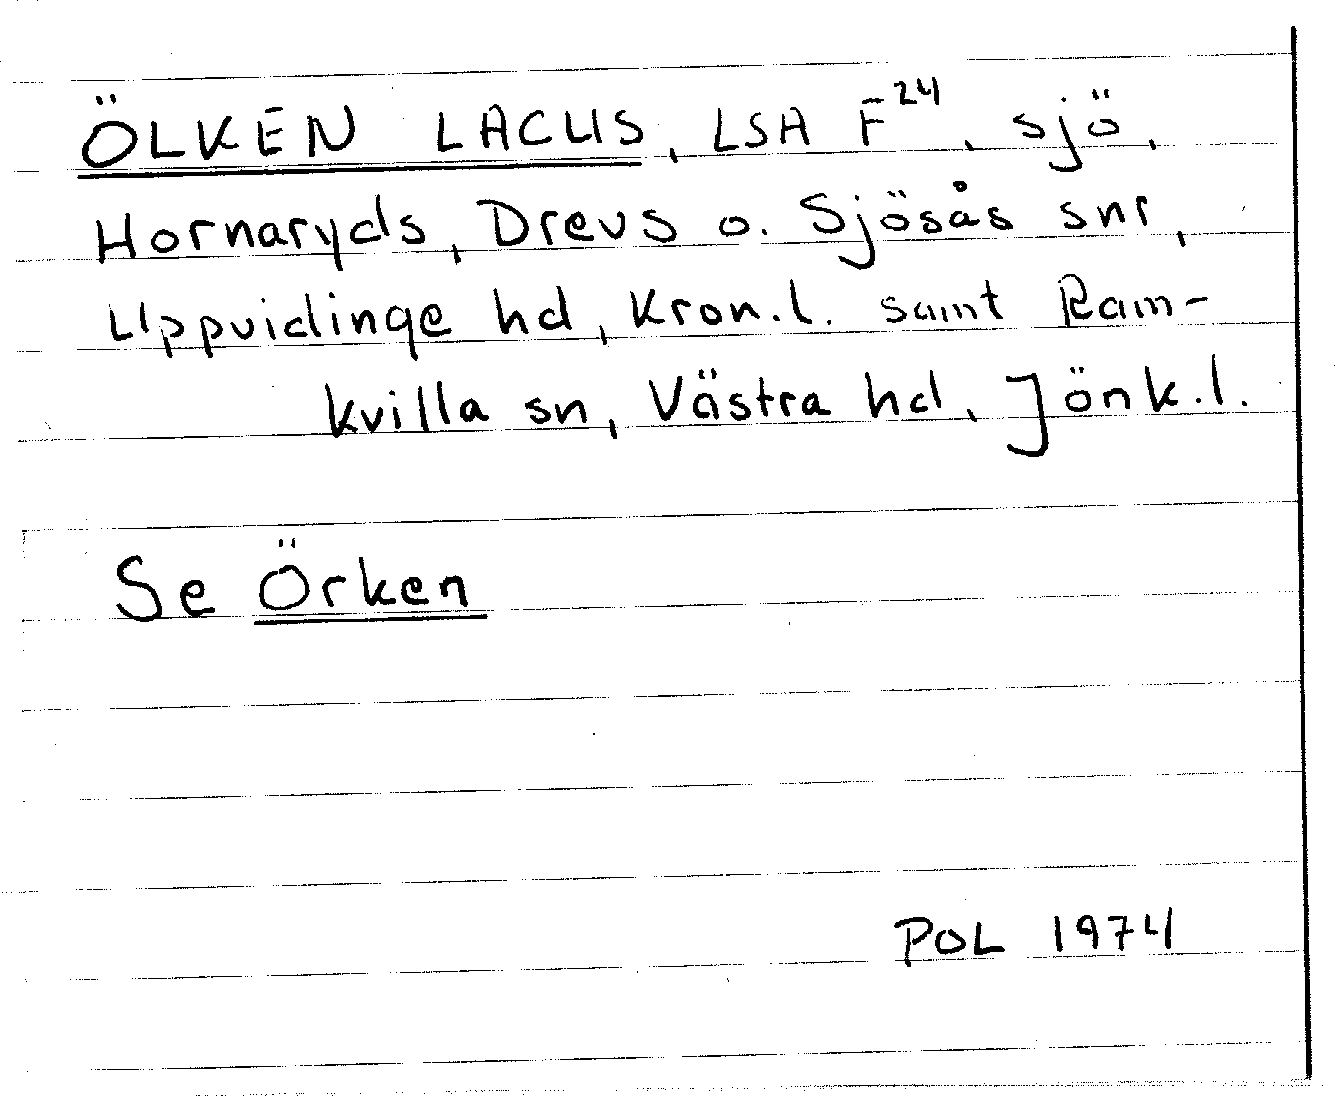 ÖLKEN LACUS, LSA F24, sjö,
Hornaryds, Drevs o. Sjösås snr,
Uppvidinge hd, Kron.l. samt Ram-
kvilla sn, Västra hd, Jönk.l.
Se Örken
POL 1974